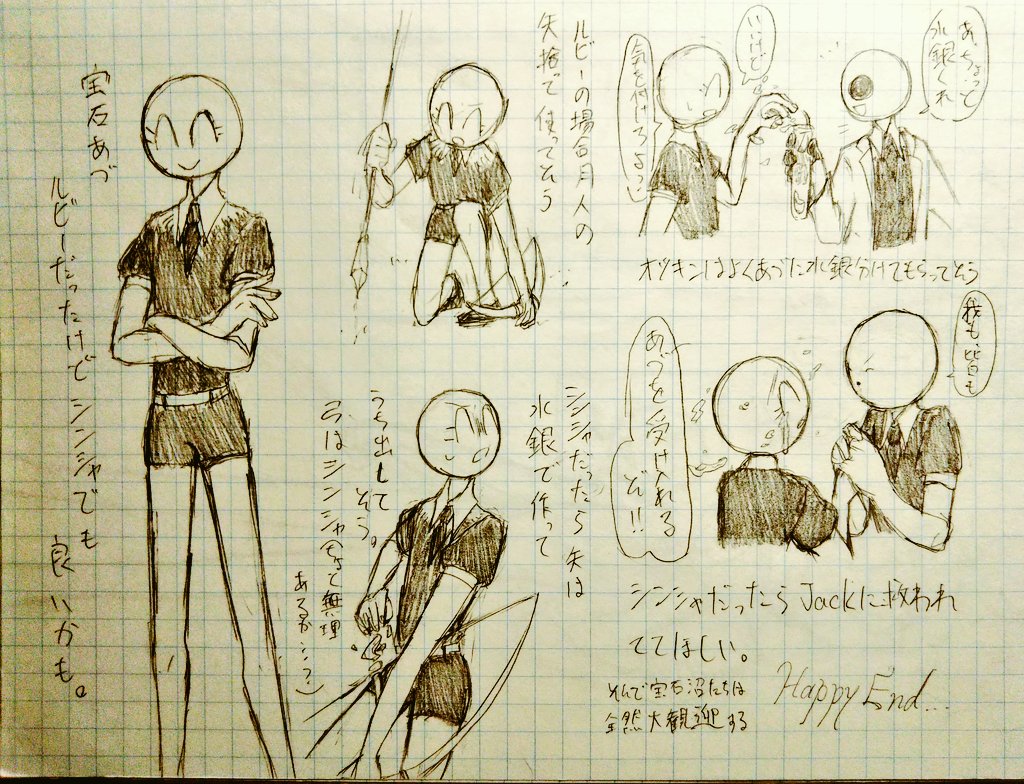 宝石あづ
ルビーだったけどシンシャでも
良いかも。
ルビーの場合月人の
矢捨て使ってそう
シンシャだったら矢は
水銀で作って
うち出して
そう。
あ、ちょっと
水銀くれ
いいけど
気を付けろよっ
オツキンはよくあづに水銀分けてもらってそう
我も、皆も
あづを受け入れる
ぞ!!
シンシャだったらJackに救われ
ててほしい。
Happy End...
そんで宝石沼たちは
全然大観迎する